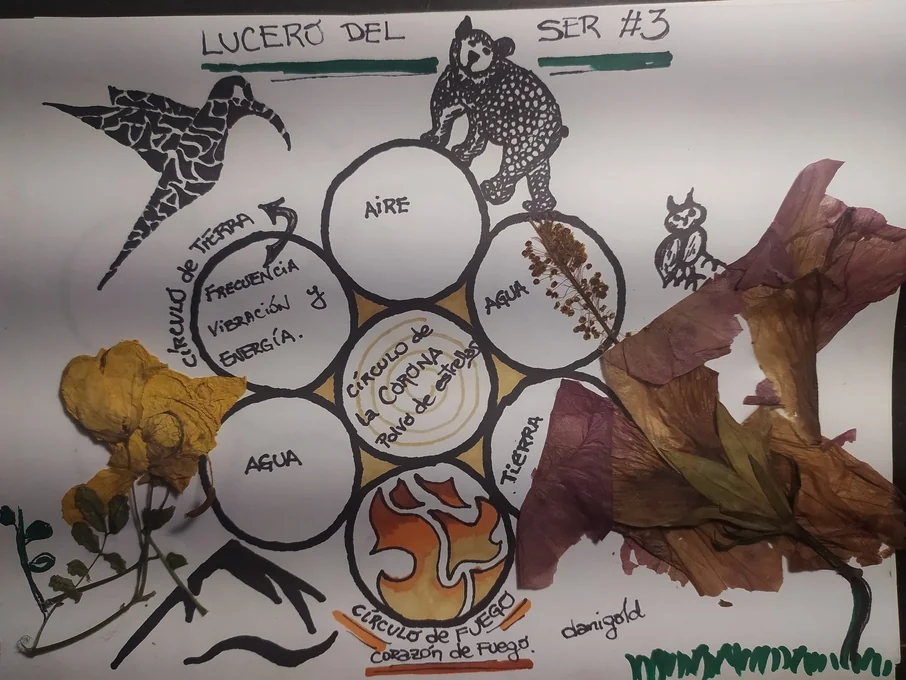 LUCERO DEL SER #3
AIRE
CÍRCULO de TIERRA
FRECUENCIA
VIBRACIÓN y
ENERGÍA.
AGUA
CÍRCULO de
la CORONA
Polvo de estrellas
AGUA
TIERRA
CÍRCULO de FUEGO
CORAZÓN de FUEGO.
danigold